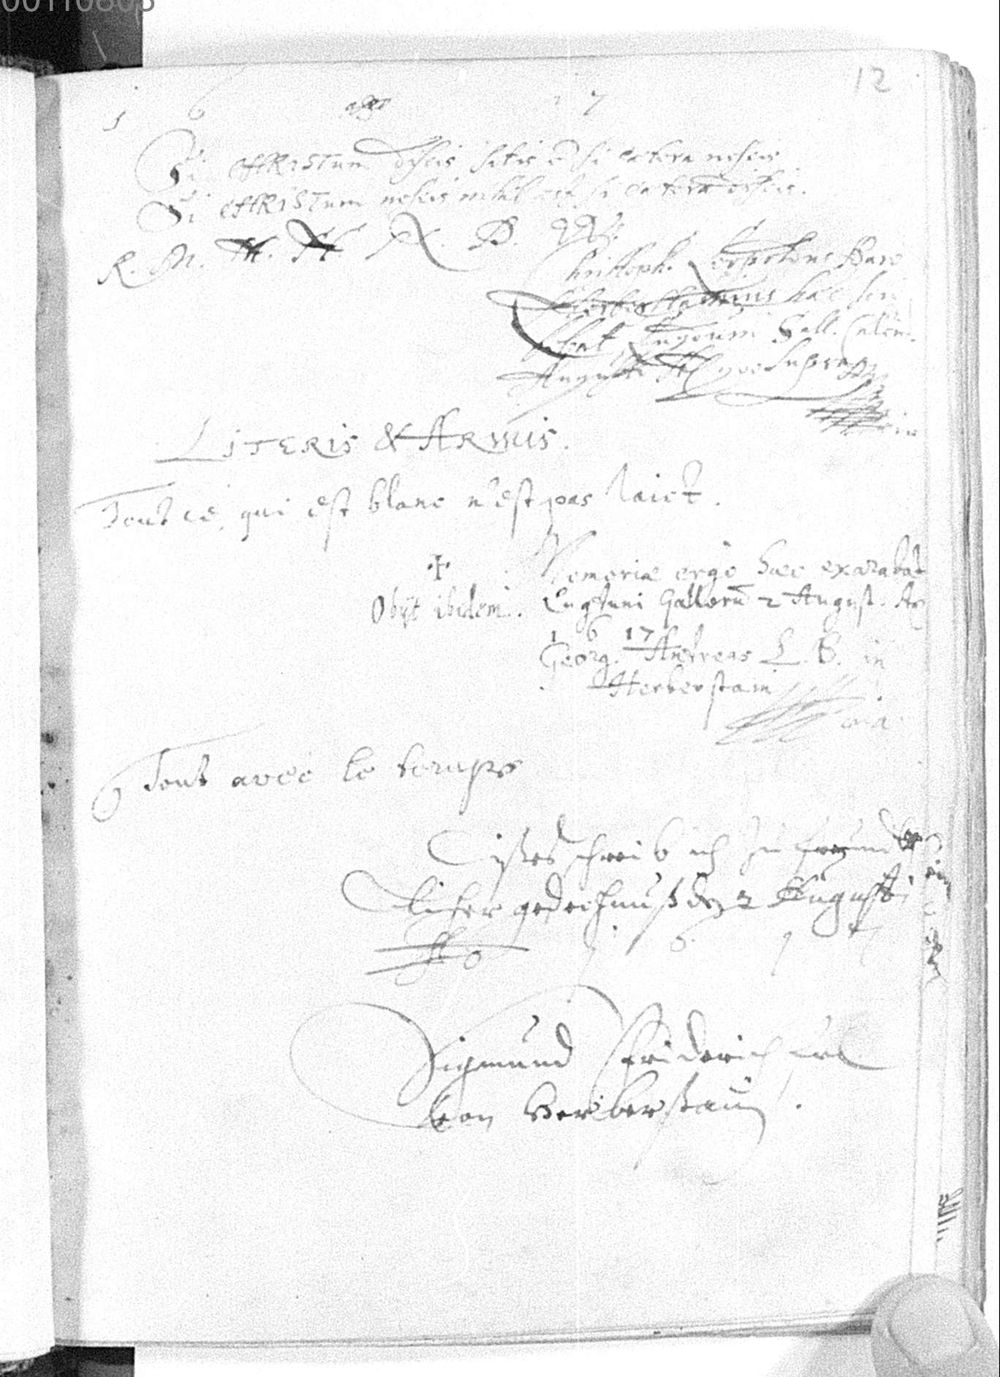 00110803
12
1 6 17
Si CHRISTum discis satis est si cetera nescis
Si CHRISTum nescis nihil est si cetera discis.
R. M. H. H
Christoph. Baro
Herberstainius haec scri
bebat Lugduni Gall. Calen.
Augusti supra
LITERIS & ARMIS.
Tout ce, qui est blanc n'est pas laict.
Memoriae ergo haec exarabat
Obijt ibidem. Lugduni Gallorū 2 August. Ao
1 6 17
Georg. Andreas L. B. in
Herberstain
Tout avec le temps
Disses schreib ich zu freundt
licher gedechnuß den 2 Augusti
Ao 1 6 1 7
Sigmund Friderich
von Herberstain.